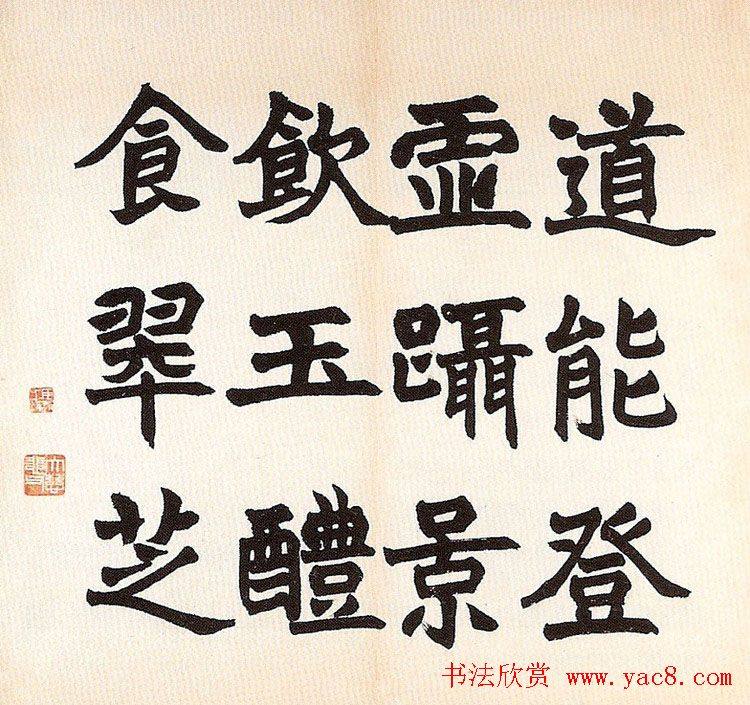 道能登
虚躡景
飲玉醴
食翠芝
书法欣赏 www.yac8.com